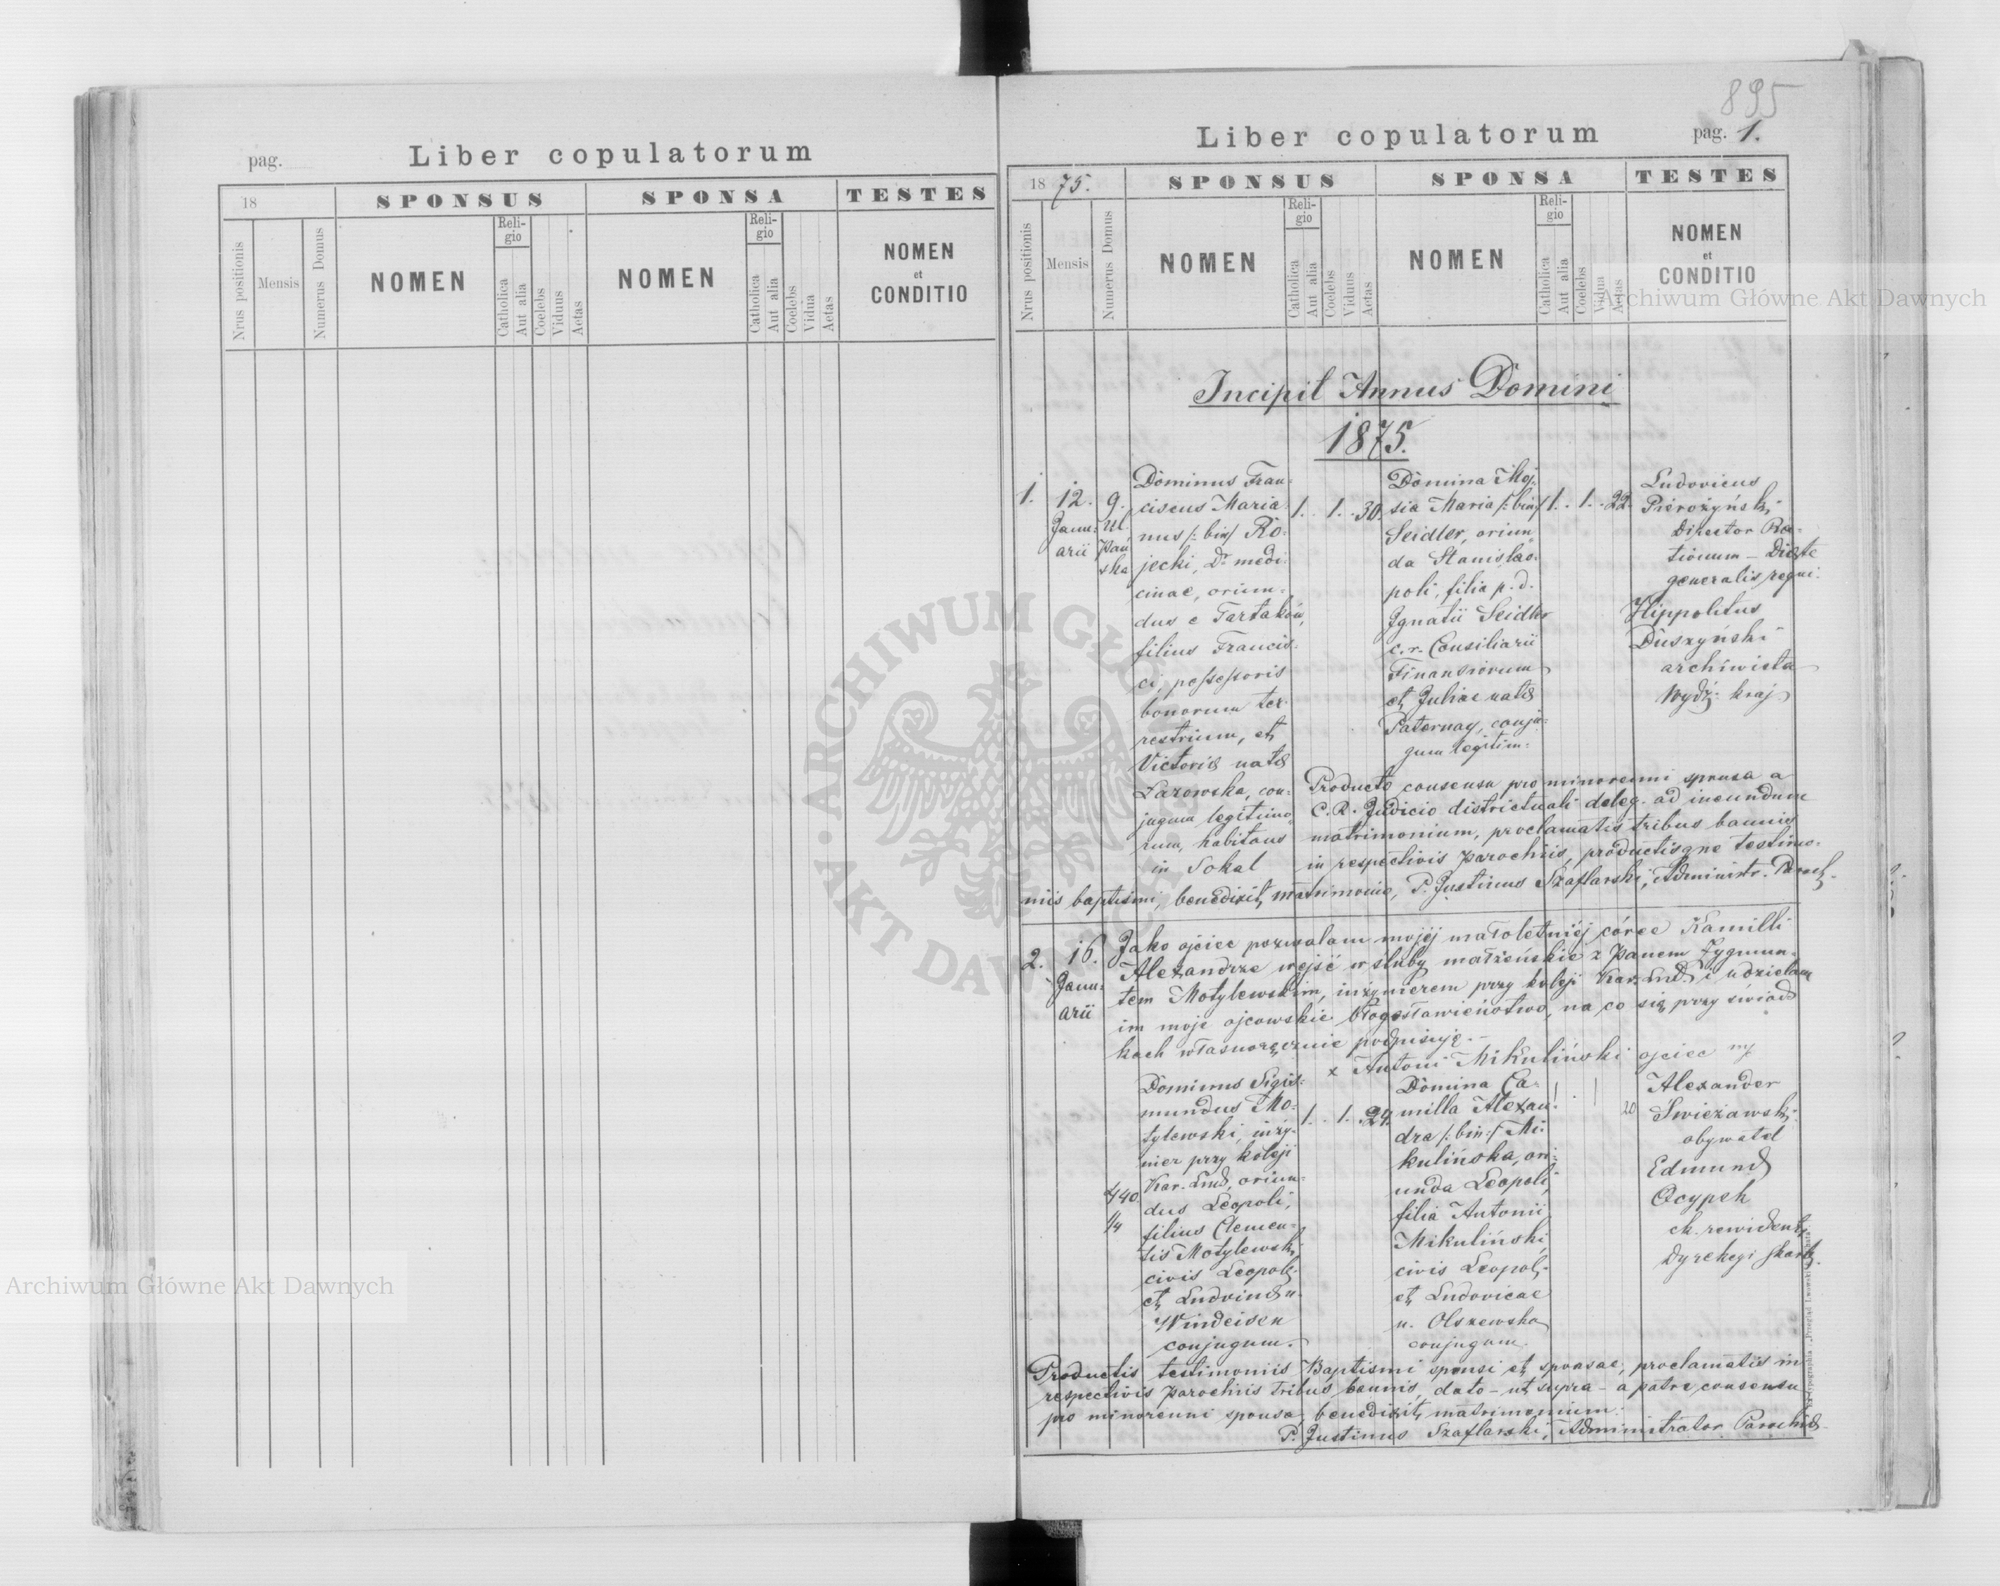 pag.
Liber copulatorum
18
SPONSUS
SPONSA
TESTES
Nrus positionis
Mensis
Numerus Domus
NOMEN
Reli-
gio
Catholica
Aut alia
Coelebs
Viduus
Aetas
NOMEN
Reli-
gio
Catholica
Aut alia
Coelebs
Vidua
Aetas
NOMEN
et
CONDITIO
895
Liber copulatorum
pag. 1.
1875.
SPONSUS
SPONSA
TESTES
Nrus positionis
Mensis
Numerus Domus
NOMEN
Reli-
gio
Catholica
Aut alia
Coelebs
Viduus
Aetas
NOMEN
Reli-
gio
Catholica
Aut alia
Coelebs
Vidua
Aetas
NOMEN
et
CONDITIO
Incipit Annus Domini
1875.
1.
12.
Janu-
arii
9.
ul.
Pań
ska
Dominus Fran-
ciscus Maria-
nus /: bin/ Ro-
jecki, Dr medi-
cinae, oriun-
dus e Tartaków,
filius Francis-
ci, possessoris
bonorum ter-
restrium, et
Victoriae natae
Łazowska, con-
jugum legitimo-
rum, habitans
in Sokal
1. 1. 30.
Domina
sia Maria /: bin/
Seidler, oriun
da Stanislao-
poli, filia p. d.
Ignatii Seidler
c. r. Consiliarii
Finansiorum
et Juliae natae
Paternay, conju-
gum legitim:
1. 1. 22.
Ludovicus
Pierożyński
Director Ra-
tionum
generalis regni.
Hippolitus
Duszyński
archiwista
Wydz: kraj
Producto consensu pro minorenni sponsa a
C. R. Judicio districtuali deleg. ad ineundum
matrimonium, proclamatis tribus bannis
in respectivis Parochiis, productisque testimo-
niis baptismi, benedixit matrimonio, P. Justinus Szaflarski, Administr. Paroch.
2.
16.
Janu-
arii
Jako ojciec pozwalam mojéj małoletniéj córce Kamilli
Alexandrze wejść w śluby małżeńskie z Panem Zygmun-
tem Motylewskim, inżynierem przy koleji Kar. Lud. i udzielam
im moje ojcowskie błogosławieństwo, na co się przy świad
kach własnoręcznie podpisuję. –
x Antoni Mikuliński ojciec mp
440
1/4
Dominus Sigis-
mundus Mo-
tylewski, inży-
nier przy koleji
Kar. Lud, oriun-
dus Leopoli,
filius Clemen-
tis Motylewski
civis Leopol.
et Ludvinae n.
Windeisen
conjugum.
1. 1. 29.
Domina Ca-
milla Alexan-
dra /: bin:/ Mi-
kulińska, ori-
unda Leopoli,
filia Antonii
Mikuliński
civis Leopol.
et Ludovicae
n. Olszewska
conjugum.
20
Alexander
Swieżawski
obywatel
Edmund
Ocypek
ck. rewident
Dyrekcyi skarb.
Productis testimoniis Baptismi sponsi et sponsae, proclamatis in
respectivis Parochiis tribus bannis, dato – ut supra – a patre consensu
pro minorenni sponsa, benedixit matrimonium:
P. Justinus Szaflarski, Administrator Parochiae
Archiwum Główne Akt Dawnych
Archiwum Główne Akt Dawnych
ARCHIWUM GŁÓWNE AKT DAWNYCH